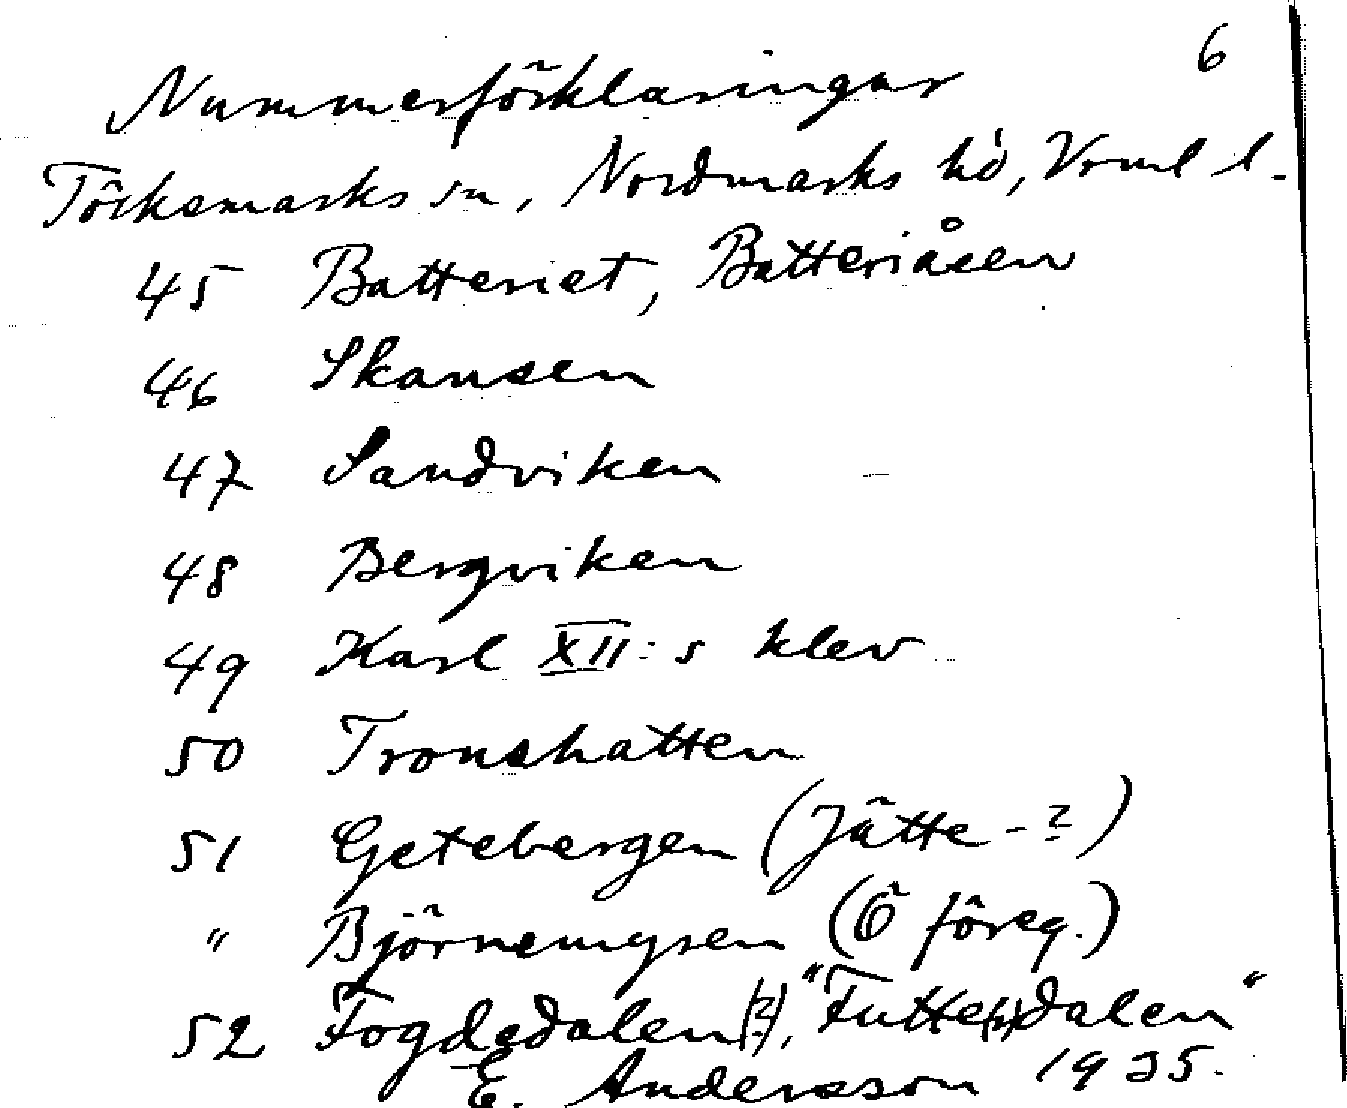 6
Nummerförklaringar
Töcksmarks sn, Nordmarks hd, Vrml l.
45 Batteriet, Batteriåsen
46 Skansen
47 Sandviken
48 Bergviken
49 Karl XII:s klev
50 Tronshatten
51 Getebergen (Jätte-?)
" Björnemyren (Ö föreg.)
52 Fogdedalen(?), "Futte(r)dalen"
E. Andersson 1935.